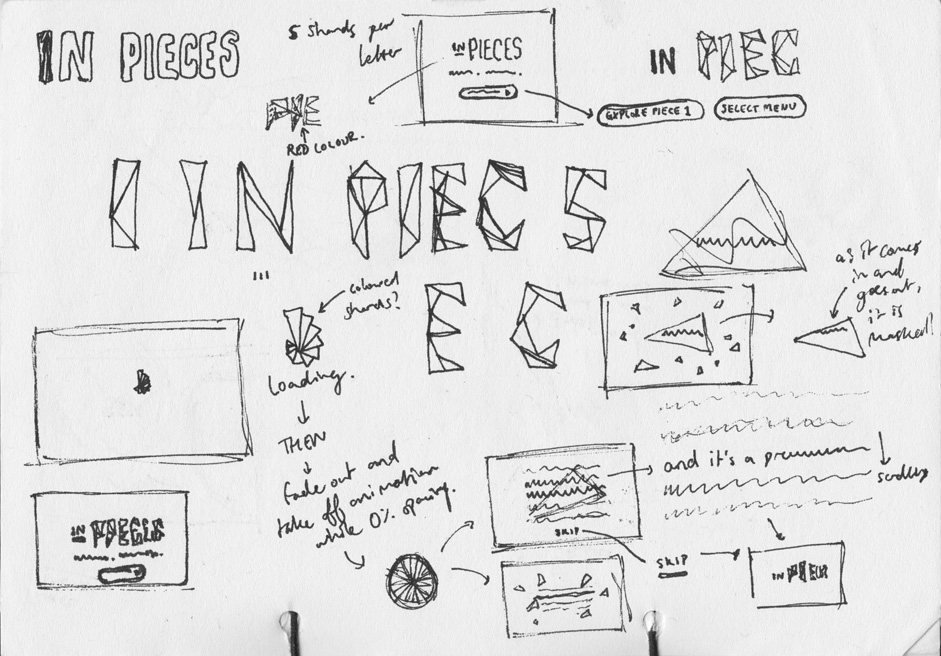 IN PIECES
5 shards per
letter
IN PIECES
IN PIEC
EXPLORE PIECE 1
SELECT MENU
RED COLOUR.
I IN PIECS
coloured
shards?
E C
as it comes
in and
goes out,
it is
masked!
Loading.
THEN
fade out and
take off animation
while 0%
and it's a
scrolling
SKIP
SKIP
IN PIECES
IN PIECES